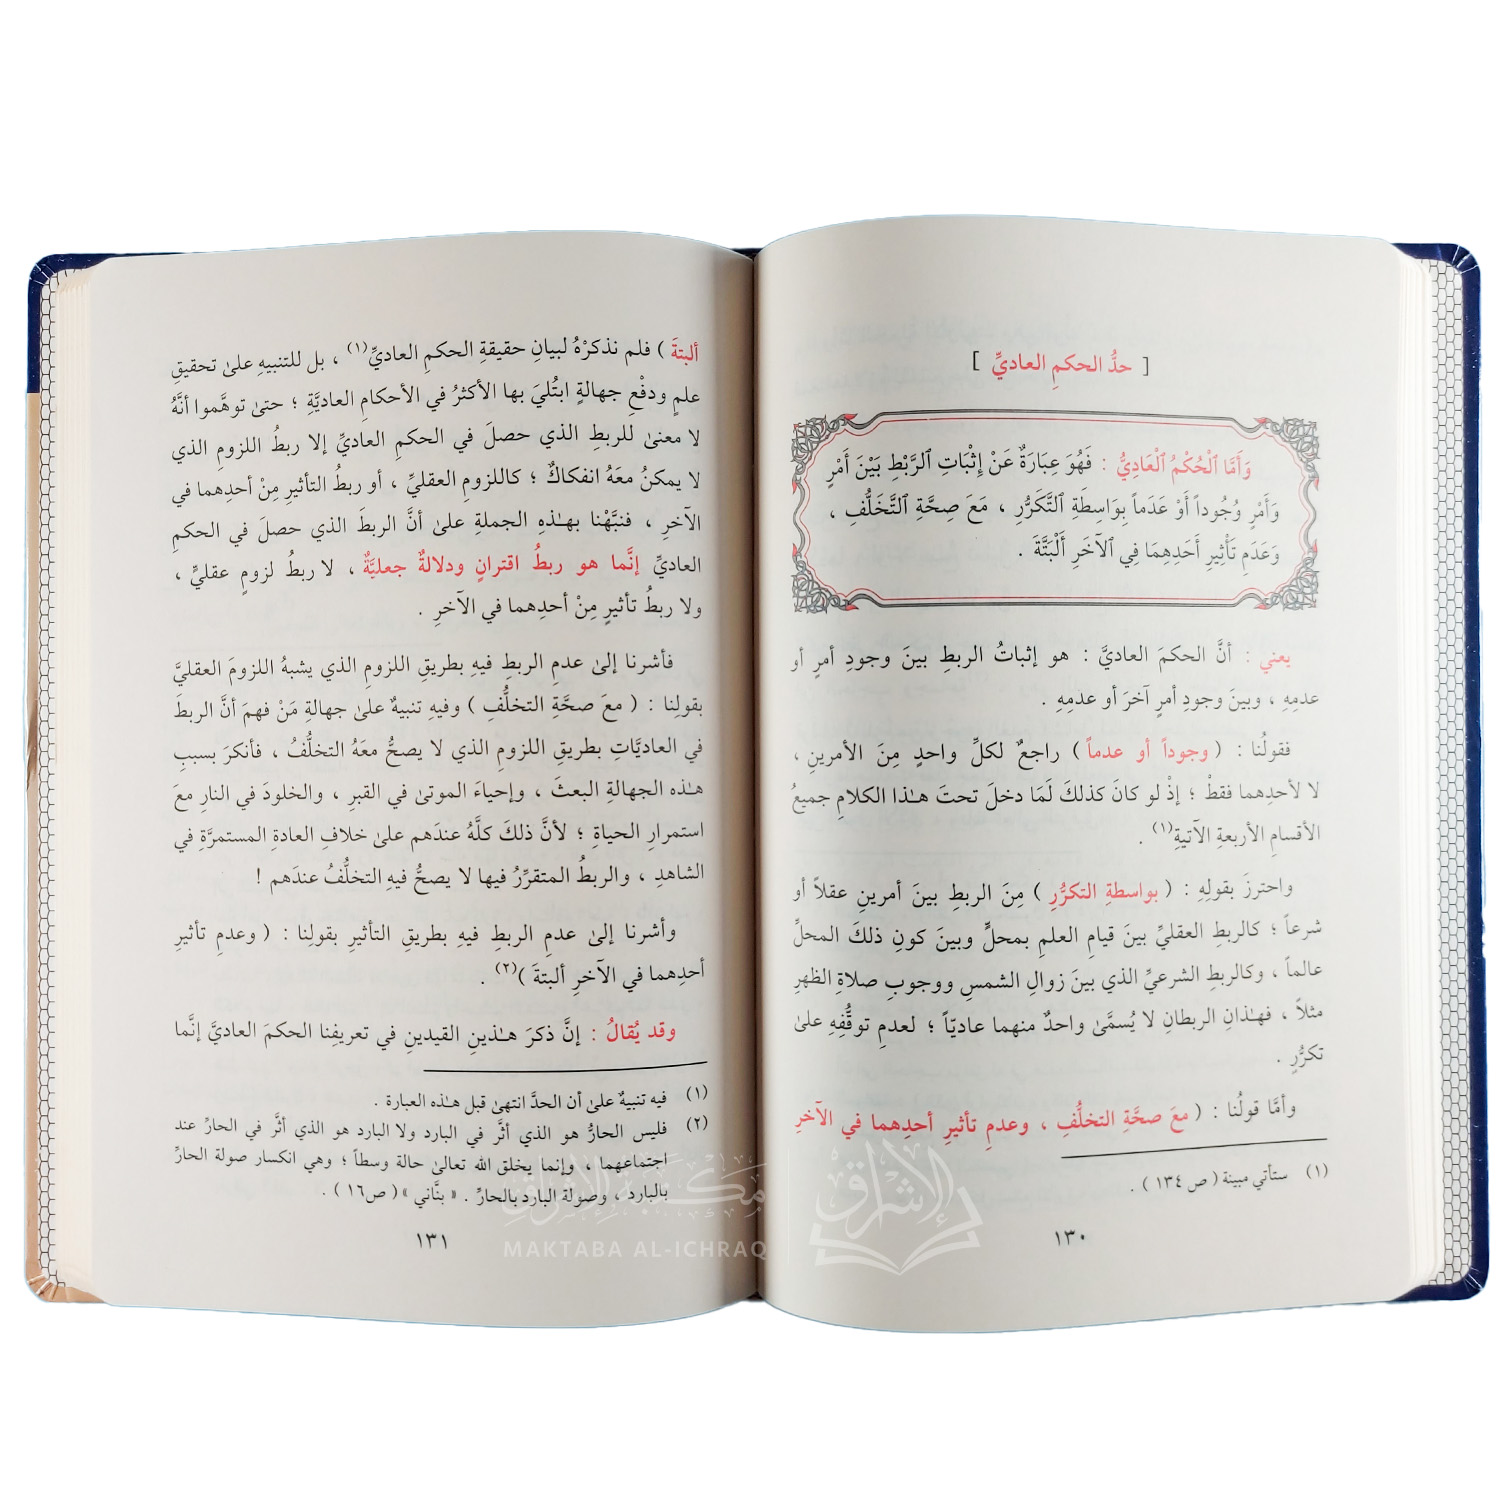 [ حدُّ الحكمِ العاديِّ ]
وَأَمَّا ٱلْحُكْمُ ٱلْعَادِيُّ : فَهُوَ عِبَارَةٌ عَنْ إِثْبَاتِ ٱلرَّبْطِ بَيْنَ أَمْرٍ
وَأَمْرٍ وُجُوداً أَوْ عَدَماً بِوَاسِطَةِ ٱلتَّكَرُّرِ ، مَعَ صِحَّةِ ٱلتَّخَلُّفِ ،
وَعَدَمِ تَأْثِيرِ أَحَدِهِمَا فِي ٱلآخَرِ أَلْبَتَّةَ .
يعني : أنَّ الحكمَ العاديَّ : هو إثباتُ الربطِ بينَ وجودِ أمرٍ أو
عدمِهِ ، وبينَ وجودِ أمرٍ آخرَ أو عدمِهِ .
فقولُنا : ( وجوداً أو عدماً ) راجعٌ لكلِّ واحدٍ مِنَ الأمرينِ ،
لا لأحدِهما فقطْ ؛ إذْ لو كانَ كذلكَ لَمَا دخلَ تحتَ هـٰذا الكلامِ جميعُ
الأقسامِ الأربعةِ الآتيةِ(١) .
واحترزَ بقولِهِ : ( بواسطةِ التكرُّرِ ) مِنَ الربطِ بينَ أمرينِ عقلاً أو
شرعاً ؛ كالربطِ العقليِّ بينَ قيامِ العلمِ بمحلٍّ وبينَ كونِ ذلكَ المحلِّ
عالماً ، وكالربطِ الشرعيِّ الذي بينَ زوالِ الشمسِ ووجوبِ صلاةِ الظهرِ
مثلاً ، فهـٰذانِ الربطانِ لا يُسمَّىٰ واحدٌ منهما عاديّاً ؛ لعدمِ توقُّفِهِ علىٰ
تكرُّرٍ .
وأمَّا قولُنا : ( معَ صحَّةِ التخلُّفِ ، وعدمِ تأثيرِ أحدِهما في الآخرِ
(١) ستأتي مبينة ( ص ١٣٤ ) .
١٣٠
ألبتةَ ) فلم نذكرْهُ لبيانِ حقيقةِ الحكمِ العاديِّ(١) ، بل للتنبيهِ علىٰ تحقيقِ
علمٍ ودفْعِ جهالةٍ ابتُليَ بها الأكثرُ في الأحكامِ العاديَّةِ ؛ حتىٰ توهَّموا أنَّهُ
لا معنىٰ للربطِ الذي حصلَ في الحكمِ العاديِّ إلا ربطُ اللزومِ الذي
لا يمكنُ معَهُ انفكاكٌ ؛ كاللزومِ العقليِّ ، أو ربطُ التأثيرِ مِنْ أحدِهما في
الآخرِ ، فنبَّهْنا بهـٰذهِ الجملةِ علىٰ أنَّ الربطَ الذي حصلَ في الحكمِ
العاديِّ إنَّما هو ربطُ اقترانٍ ودلالةٌ جعليَّةٌ ، لا ربطُ لزومٍ عقليٍّ ،
ولا ربطُ تأثيرٍ مِنْ أحدِهما في الآخرِ .
فأشرنا إلىٰ عدمِ الربطِ فيهِ بطريقِ اللزومِ الذي يشبهُ اللزومَ العقليَّ
بقولِنا : ( معَ صحَّةِ التخلُّفِ ) وفيهِ تنبيهٌ علىٰ جهالةِ مَنْ فهمَ أنَّ الربطَ
في العاديَّاتِ بطريقِ اللزومِ الذي لا يصحُّ معَهُ التخلُّفُ ، فأنكرَ بسببِ
هـٰذهِ الجهالةِ البعثَ ، وإحياءَ الموتىٰ في القبرِ ، والخلودَ في النارِ معَ
استمرارِ الحياةِ ؛ لأنَّ ذلكَ كلَّهُ عندَهم علىٰ خلافِ العادةِ المستمرَّةِ في
الشاهدِ ، والربطُ المتقرِّرُ فيها لا يصحُّ فيهِ التخلُّفُ عندَهم !
وأشرنا إلىٰ عدمِ الربطِ فيهِ بطريقِ التأثيرِ بقولِنا : ( وعدمِ تأثيرِ
أحدِهما في الآخرِ ألبتةَ )(٢) .
وقد يُقالُ : إنَّ ذكرَ هـٰذينِ القيدينِ في تعريفِنا الحكمَ العاديَّ إنَّما
(١) فيه تنبيهٌ علىٰ أن الحدَّ انتهىٰ قبل هـٰذه العبارة .
(٢) فليس الحارُّ هو الذي أثَّر في البارد ولا البارد هو الذي أثر في الحارِّ عند
اجتماعهما ، وإنما يخلق الله تعالىٰ حالة وسطاً ؛ وهي انكسار صولة الحارِّ
بالبارد ، وصولة البارد بالحارِّ . « بنَّاني » ( ص١٦ ) .
١٣١
مكتبة الإشراق
MAKTABA AL-ICHRAQ
الإشراق